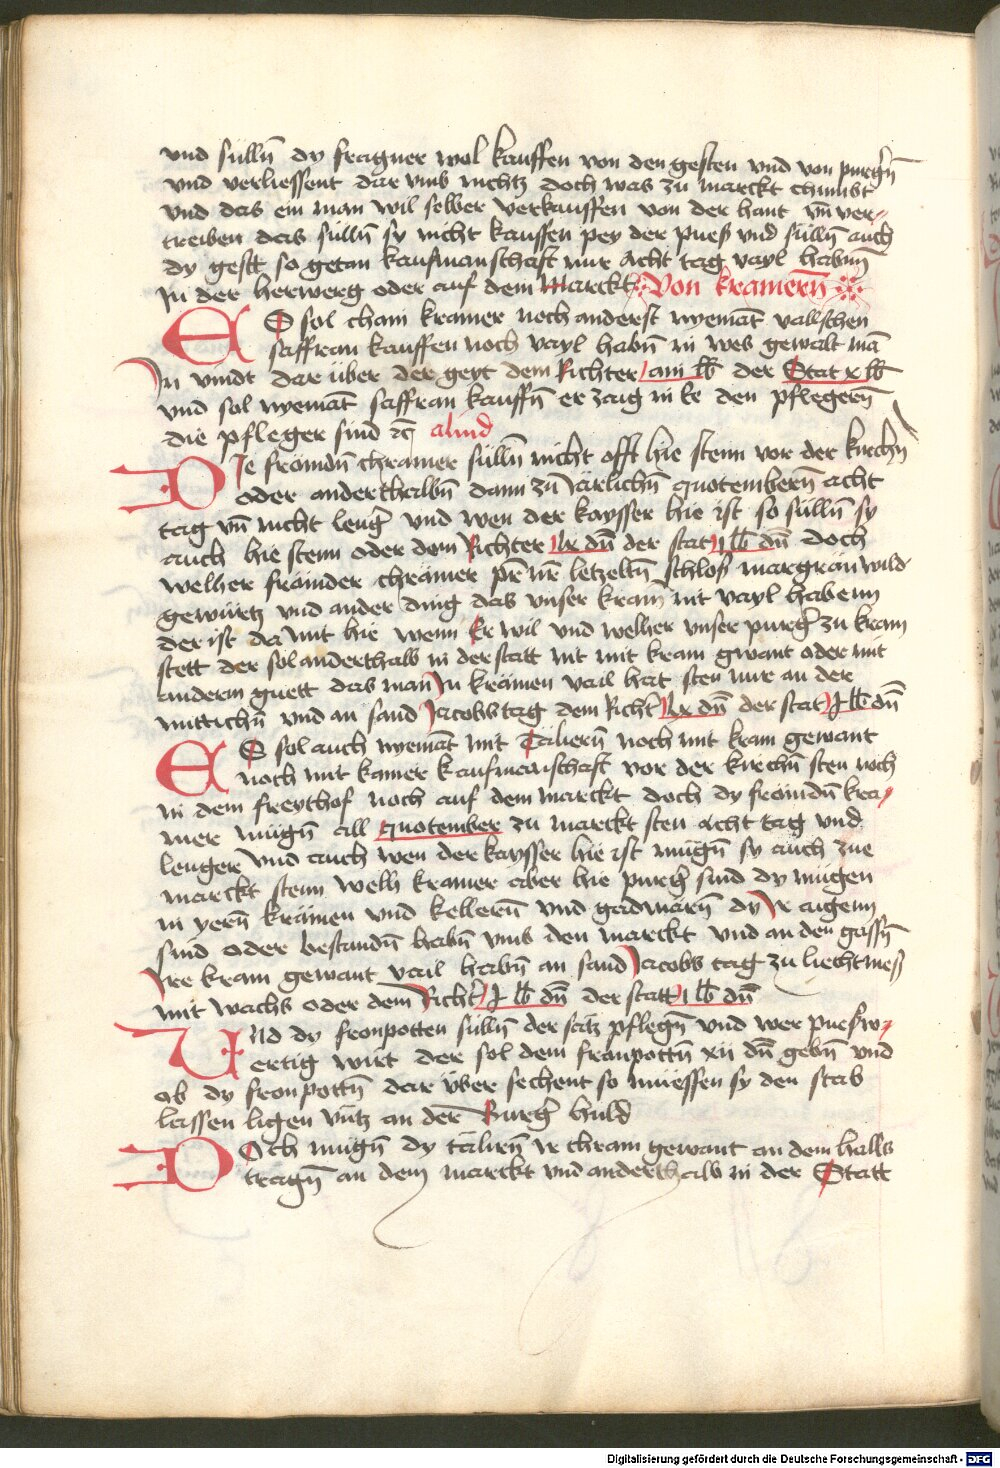 und süllñ dy fragner wol kauffen von den gesten vnd von purgʼñ
vnd verliessent dar vmb nichtz doch was zu marckt chumbt
vnd das ein man wil selber verkauffen von der hant vñ ver-
treiben das süllñ sy nicht kauffen pey der pueß vnd süllñ auch
dy gestt so getan kaufmanschafft nur acht tag vayl habnn
In der herwerg oder auf dem Marckt Von kramerñ
ES sol chain kramer noch anderst nyemāt vallschen
saffran kauffen noch vayl habñ in wes gewalt mā
In vindt dar über der geyt dem Richter ain lb der Stat x lb
vnd sol nyemāt saffran kauffñ er zaig in ee den pflegerñ
die pfleger sind ꝛc̃ aliud
DIe frömdñ chramer süllñ nicht offt hie stenn vor der kirchñ
oder anderthalbñ dann zu Järlichñ quotemberñ acht
tag vñ nicht lengʼ vnd wen der kaysser hie ist so süllñ sy
auch hie stenn oder dem Richter lx dñ der stat j lb dñ doch
welher frömder chrämer letzeltñ schloß margran wild
gewürtz vnd ander ding das vnser kram nit vayl habenn
der ist da mit hie wenn Er wil vnd welher vnser purgʼ zu kram
stett der sol anderthalb in der statt nit mit kram gwant oder mit
anderm guett das man In krämen vail hat sten nur an der
mittichñ vnd an sand Jacobs tag dem Richtʼ lx dñ der stat j lb dñ
ES sol auch nyemāt mit Tälierñ noch mit kram gewant
noch mit kamer kaufmanschafft vor der kirchñ sten noch
in dem freythof noch auf dem marckt doch dy frömdñ kra-
mer mügñ all quotember zu marckt sten acht tag vnd
lenger vnd auch wen der kaysser hie ist mügñ sy auch zue
marckt stenn welh kramer aber hie purgʼ sind dy mügen
in yerñ krämen vnd kellerñ vnd gadmärñ dy Ir aigenn
sind oder bestandñ habñ vmb den marckt vnd an den gassñ
Ire kram gewant vail habñ an sand Jacobs tag zu liechtmeß
mit wachs oder dem Richtʼ j lb dñ der statt j lb dñ
VNd dy fronpotten süllñ der sätz pflegñ vnd wer pueßw-
ertig wirt der sol dem fronpottñ xii dñ gebñ vnd
ob dy fronpottñ dar über sechent so müessen sy den stab
lassen ligen vntz an der Burgʼ huld
DOch mügñ dy tälierñ Ir chram gewant an dem halls
tragñ an dem marckt vnd anderthalb in der Statt
Digitalisierung gefördert durch die Deutsche Forschungsgemeinschaft - DFG